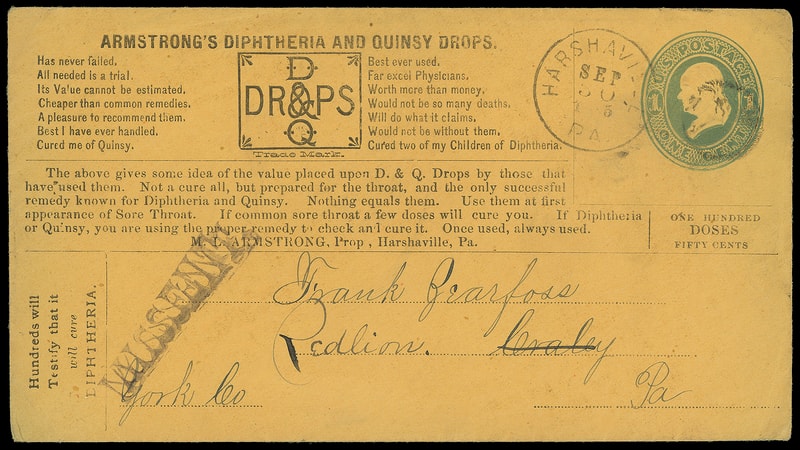 ARMSTRONG'S DIPHTHERIA AND QUINSY DROPS.
Has never failed.
All needed is a trial.
Its Value cannot be estimated.
Cheaper than common remedies.
A pleasure to recommend them.
Best I have ever handled.
Cured me of Quinsy.
D
DR&PS
Q
Trade Mark.
Best ever used.
Far excel Physicians.
Worth more than money.
Would not be so many deaths.
Will do what it claims.
Would not be without them.
Cured two of my Children of Diphtheria.
HARSHAVI
SEP
PA
U.S. POSTAGE
1 1
ONE CENT
The above gives some idea of the value placed upon D. & Q. Drops by those that
have used them. Not a cure all, but prepared for the throat, and the only successful
remedy known for Diphtheria and Quinsy. Nothing equals them. Use them at first
appearance of Sore Throat. If common sore throat a few doses will cure you. If Diphtheria
or Quinsy, you are using the proper remedy to check and cure it. Once used, always used.
M. L. ARMSTRONG, Prop, Harshaville, Pa.
ONE HUNDRED
DOSES
FIFTY CENTS
Hundreds will
Testify that it
will cure
DIPHTHERIA.
MISSENT
Frank Gearfoss
Redlion. Craley
York Co Pa